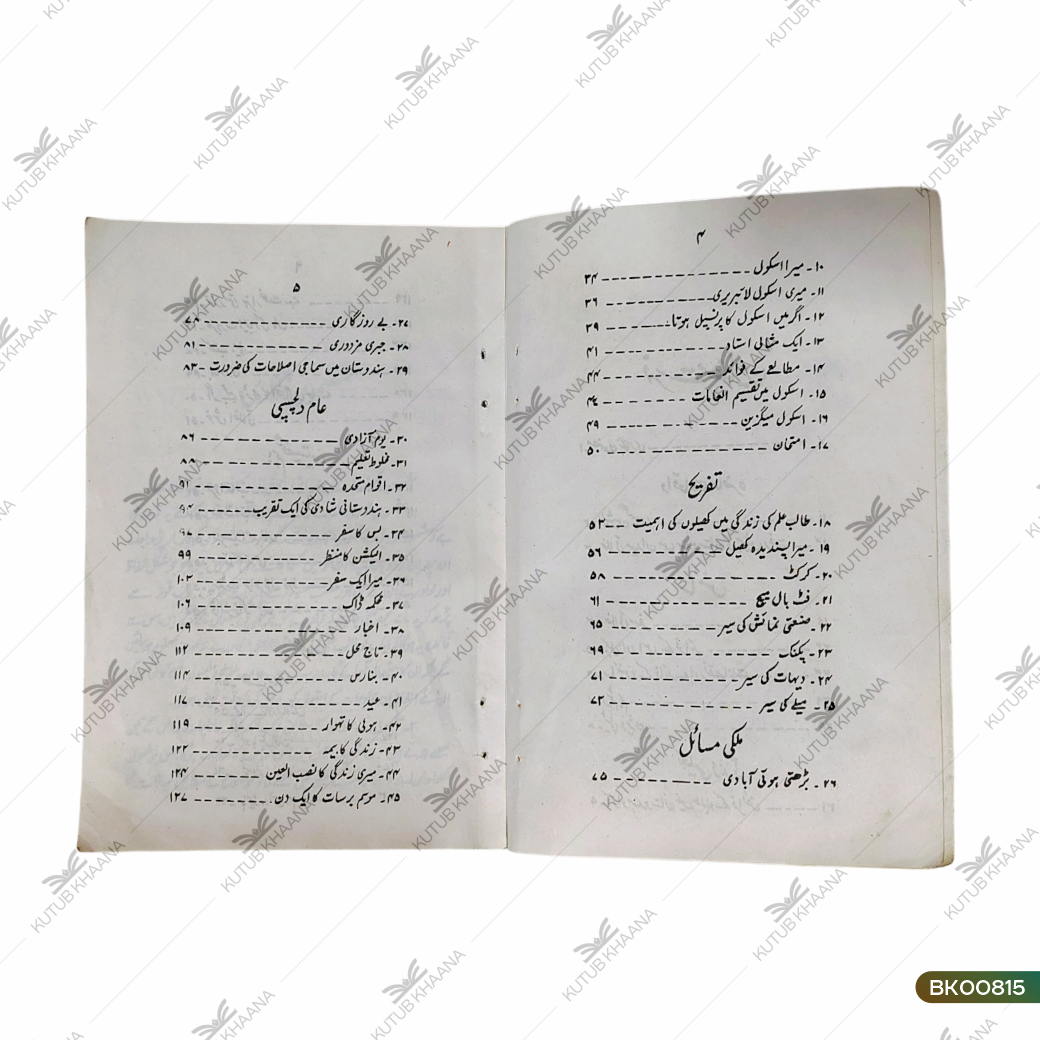 ۴
۱۰۔ میرا اسکول ۳۴
۱۱۔ میری اسکول لائبریری ۳۶
۱۲۔ اگر میں اسکول کا پرنسپل ہوتا ۳۹
۱۳۔ ایک مثالی استاد ۴۱
۱۴۔ مطالعے کے فوائد ۴۴
۱۵۔ اسکول میں تقسیم انعامات ۴۶
۱۶۔ اسکول میگزین ۴۹
۱۷۔ امتحان ۵۰
تفریح
۱۸۔ طالب علم کی زندگی میں کھیلوں کی اہمیت ۵۳
۱۹۔ میرا پسندیدہ کھیل ۵۶
۲۰۔ کرکٹ ۵۸
۲۱۔ فٹ بال میچ ۶۱
۲۲۔ صنعتی نمائش کی سیر ۶۵
۲۳۔ پکنک ۶۹
۲۴۔ دیہات کی سیر ۷۱
۲۵۔ میلے کی سیر ۷۳
ملکی مسائل
۲۶۔ بڑھتی ہوئی آبادی ۷۵
۵
۲۷۔ بے روزگاری ۷۸
۲۸۔ جبری مزدوری ۸۱
۲۹۔ ہندوستان میں سماجی اصلاحات کی ضرورت ۸۳
عام دلچسپی
۳۰۔ یوم آزادی ۸۶
۳۱۔ مخلوط تعلیم ۸۸
۳۲۔ اقوام متحدہ ۹۱
۳۳۔ ہندوستانی شادی کی ایک تقریب ۹۴
۳۴۔ بس کا سفر ۹۷
۳۵۔ الیکشن کا منظر ۹۹
۳۶۔ میرا ایک سفر ۱۰۳
۳۷۔ محکمہ ڈاک ۱۰۶
۳۸۔ اخبار ۱۰۹
۳۹۔ تاج محل ۱۱۲
۴۰۔ بنارس ۱۱۴
۴۱۔ عید ۱۱۷
۴۲۔ ہولی کا تہوار ۱۱۹
۴۳۔ زندگی کا بیمہ ۱۲۲
۴۴۔ میری زندگی کا نصب العین ۱۲۴
۴۵۔ موسم برسات کا ایک دن ۱۲۷
KUTUB KHAANA
BK00815